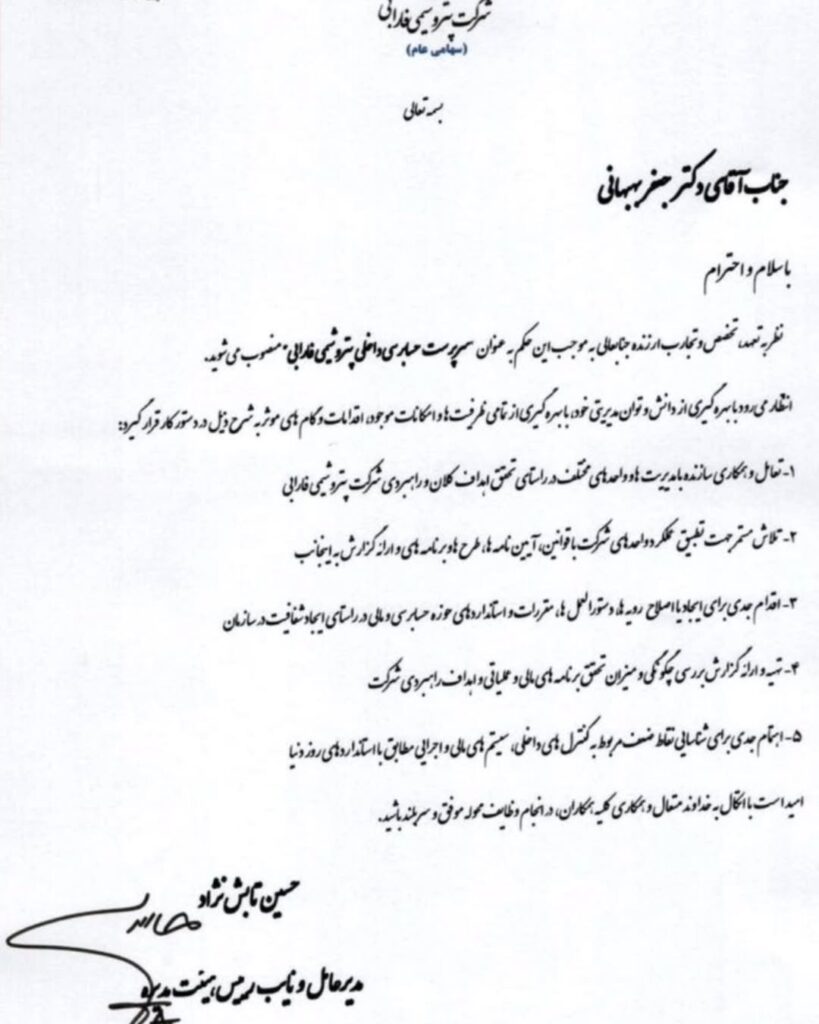 شرکت پتروشیمی فارابی
(سهامی عام)
بسمه تعالی
جناب آقای دکتر جعفر بهبهانی
با سلام و احترام
نظر به تعهد، تخصص و تجارب ارزنده جنابعالی به موجب این حکم به عنوان "سرپرست حسابرسی داخلی پتروشیمی فارابی" منصوب می شوید.
انتظار می رود با بهره گیری از دانش و توان مدیریتی خود، با بهره گیری از تمامی ظرفیت ها و امکانات موجود، اقدامات و گام های موثر به شرح ذیل در دستور کار قرار گیرد:
۱- تعامل و همکاری سازنده با مدیریت ها و واحدهای مختلف در راستای تحقق اهداف کلان و راهبردی شرکت پتروشیمی فارابی
۲- تلاش مستمر جهت تطبیق عملکرد واحدهای شرکت با قوانین، آیین نامه ها، طرح ها و برنامه های و ارائه گزارش به اینجانب
۳- اقدام جدی برای ایجاد یا اصلاح رویه ها، دستورالعمل ها، مقررات و استانداردهای حوزه حسابرسی و مالی در راستای ایجاد شفافیت در سازمان
۴- تهیه و ارائه گزارش بررسی چگونگی و میزان تحقق برنامه های مالی و عملیاتی و اهداف راهبردی شرکت
۵- اهتمام جدی برای شناسایی نقاط ضعف مربوط به کنترل های داخلی، سیستم های مالی و اجرایی مطابق با استانداردهای روز دنیا
امید است با اتکال به خداوند متعال و همکاری کلیه همکاران، در انجام وظایف محوله موفق و سربلند باشید.
حسین تابش نژاد
مدیرعامل و نایب رییس هیئت مدیره